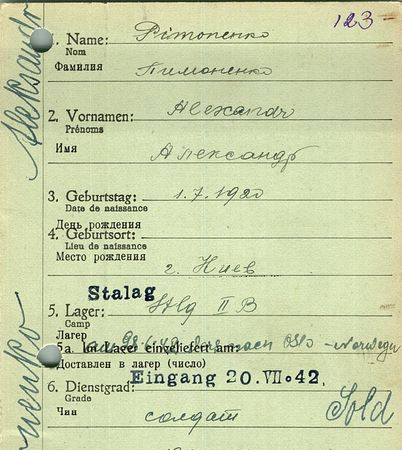 123
1. Name: Pimonenko
Nom
Фамилия Пимоненко
2. Vornamen: Alexandr
Prénoms
Имя Александр
3. Geburtstag: 1.7.1920
Date de naissance
День рождения
4. Geburtsort:
Lieu de naissance
Место рождения г. Киев
Stalag
5. Lager: Stlg II B
Camp
Лагерь
5a. Im Lager eingeliefert am: nach Oslo - Norwegen
Доставлен в лагер (число)
Eingang 20.VII.42.
6. Dienstgrad: Sold
Grade
Чин солдат
Aleksandr